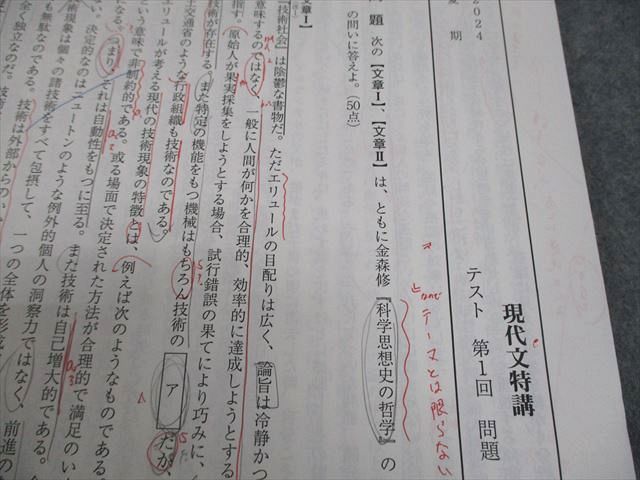 2024
夏期
現代文特講
テスト 第1回 問題
問題 次の【文章Ⅰ】、【文章Ⅱ】は、ともに金森修『科学思想史の哲学』の
の問いに答えよ。(50点)
テーマとは限らない
【文章Ⅰ】
『技術社会』は陰鬱な書物だ。ただエリュールの目配りは広く、論旨は冷静かつ
意味するのではなく、一般に人間が何かを合理的、効率的に達成しようとする
指す。原始人が果実採集をしようとする場合、試行錯誤の果てにより巧みに、
技術が存在する。また特定の機能をもつ機械はもちろん技術の ア だが、
土交通省のような行政組織も技術なのである。
エリュールが考える現代の技術現象の特徴とは、例えば次のようなものである。
という意味で非制約的である。或る場面で決定された方法が合理的で満足のい
なる。つまり、それは自動性をもつに至る。また技術は自己増大的である。
い。決定的なのはニュートンのような例外的個人の洞察力ではなく、前進の
も無駄なのである。技術は外部からの
術現象は個々の諸技術をすべて包摂して、一つの全体を形
全く独立なのだ。技術